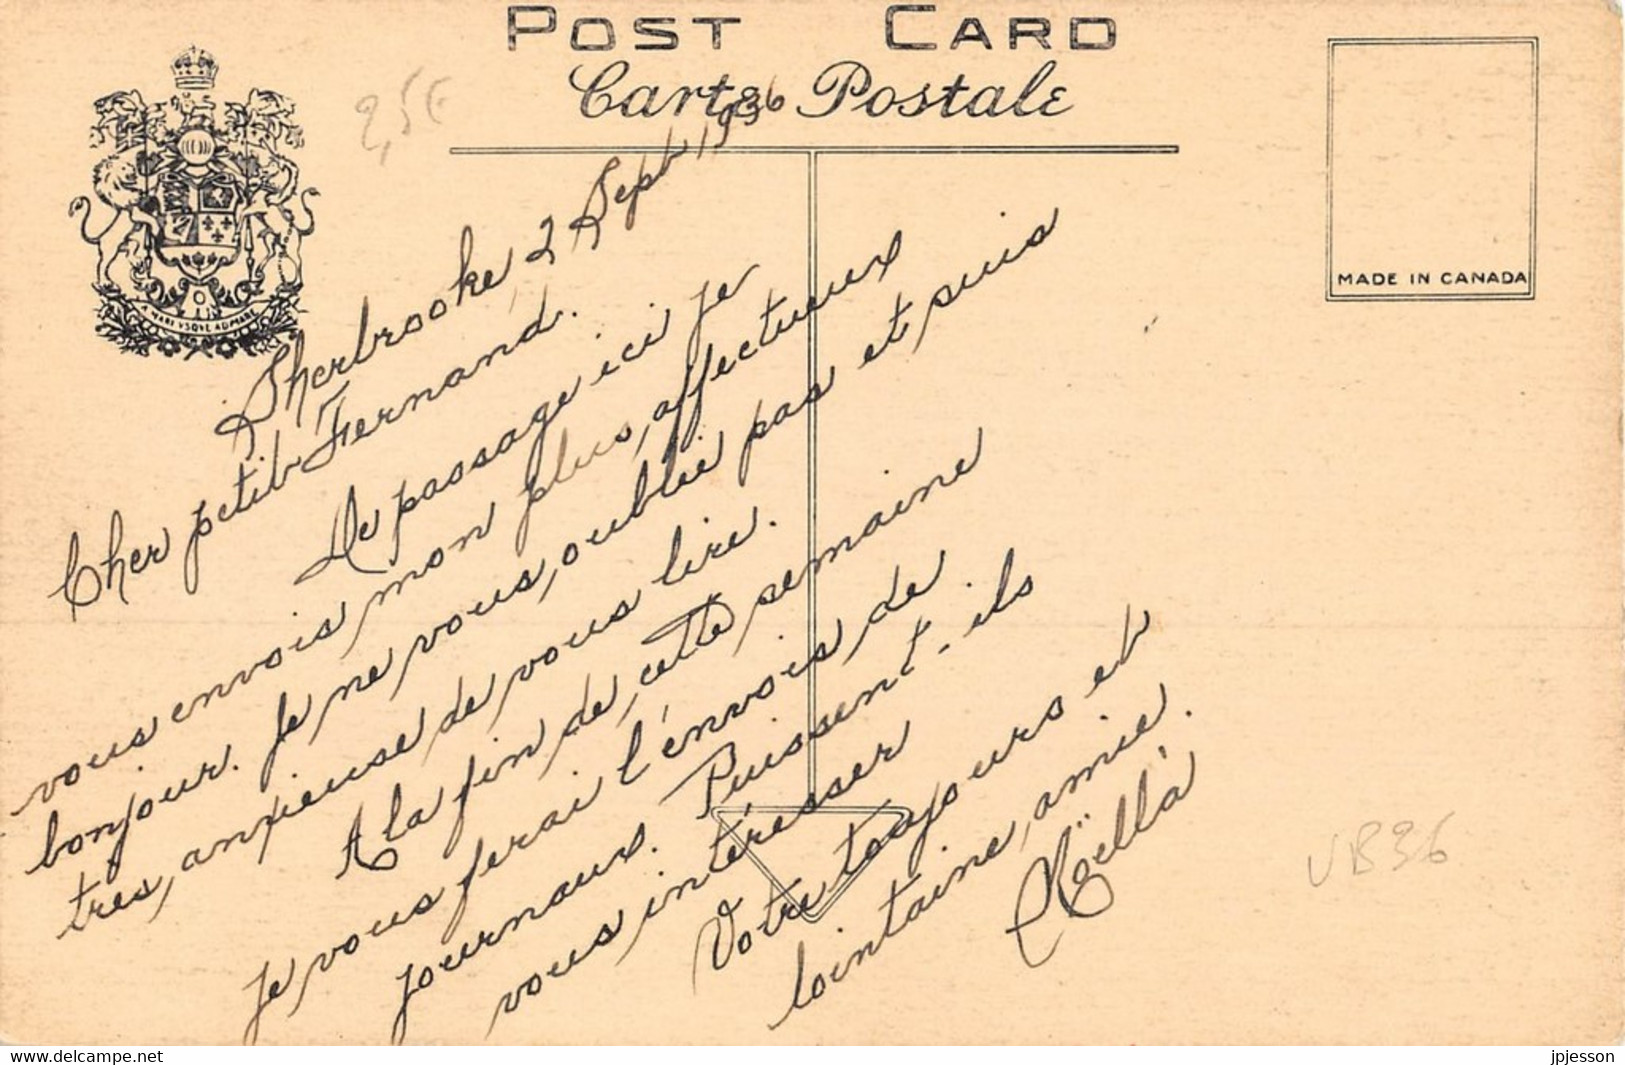 POST CARD
Carte Postale
2,5€
A MARI VSQVE AD MARE
MADE IN CANADA
Sherbrooke, 2 Sept 1936
Cher petit Fernand.
De passage ici je
vous envois mon plus affectueux
bonjour. Je ne vous oublie pas et suis
très anxieuse de vous lire.
A la fin de cette semaine
je vous ferai l'envois de
journaux. Puissent-ils
vous intéresser
Votre toujours et
lointaine amie.
VB36
www.delcampe.net
jpjesson